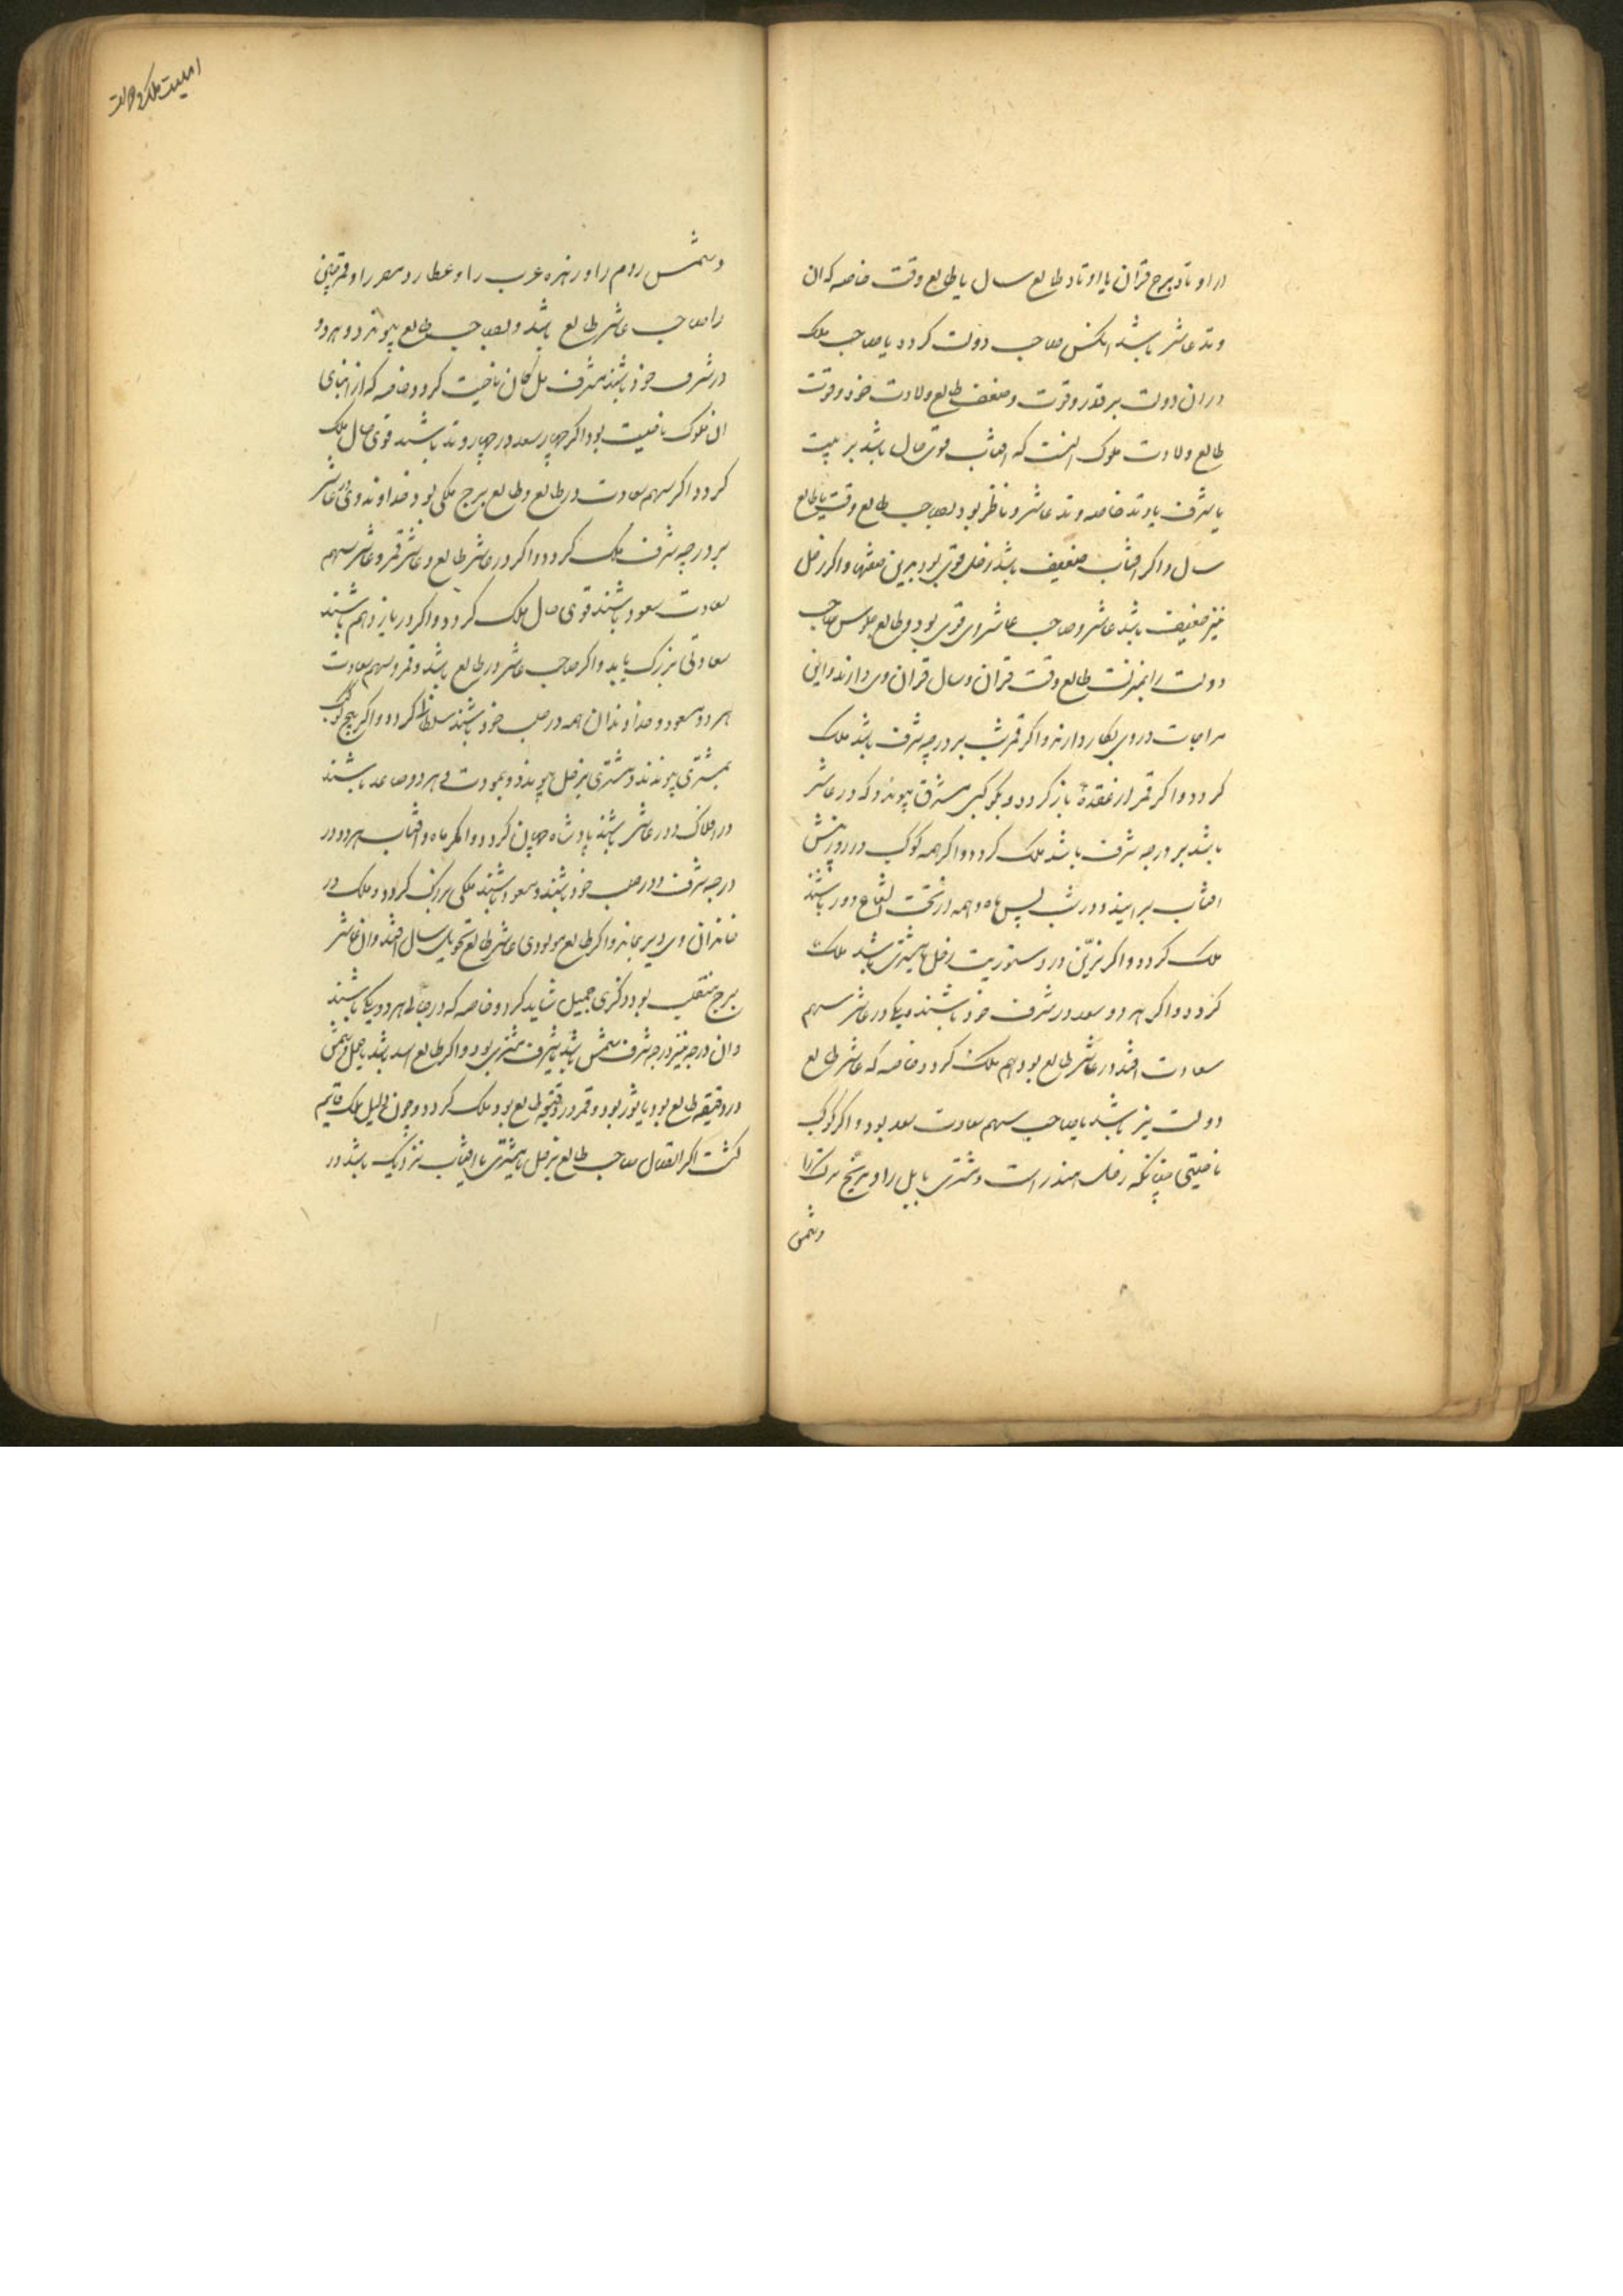 در اوتاد برج قران یا اوتاد طالع سال یا طالع وقت خاصه که ان
وتد عاشر باشد انکس صاحب دولت کردد یا صاحب ملک
دران دولت بر قدر و قوت و ضعف طالع ولادت خود و قوت
طالع ولادت ملوک انست که افتاب قوی حال باشد بر بیت
یا شرف یا وتد خاصه وتد عاشر و ناظر بود بصاحب طالع وقت یا طالع
سال و اکر افتاب ضعیف باشد زحل قوی بود برین صفتها و اکر زحل
نیز ضعیف باشد عاشر و صاحب عاشر وی قوی بود و طالع جلوس صاحب
دولت را بمنزلت طالع وقت قران و سال قران وی دارند و این
مزاجات در وی بکار دارند و اکر قمر بشب بر درجه شرف باشد ملک
کردد و اکر قمر از عقده باز کردد و بکوکبی مشرق پیوندد که در عاشر
باشد بر درجه شرف باشد ملک کردد و اکر همه کوکب در روز پیش
افتاب برایند و در شب پس ماه و همه از تحت الشعاع دور باشند
ملک کردد و اکر نیرین در دستوریت زحل یا مشتری باشد ملک
کردد و اکر هر دو سعد در شرف خود باشند و یکی در عاشر سهم
سعادت افتد در عاشر طالع بود هم ملک کردد خاصه که عاشر طالع
دولت نیز باشد یا صاحب سهم سعادت سعد بود و اکر کوکب
ناحیتی چنانکه زحل هند راست و مشتری بابل را و مریخ ترک را
و شمس
امنیت ملک و دولت
و شمس روم را و زهره عرب را و عطارد مصر را و قمر چین
را صاحب عاشر طالع باشد و بصاحب طالع پیوندد و هر دو
در شرف خود باشند بشرف ملکان ناحیت کردد خاصه که از ابنای
ان ملوک ناحیت بود اکر چهار سعد در چهار وتد باشند قوی حال ملک
کردد اکر سهم سعادت در طالع و طالع برج ملکی بود و خداوند وی در عاشر
بر درجه شرف ملک کردد و اکر در عاشر طالع و عاشر قمر و عاشر سهم
سعادت سعود باشند قوی حال ملک کردد و اکر در یازدهم باشند
سعادتی بزرک یابد و اکر صاحب عاشر در طالع باشد و قمر و سهم سعادت
هر دو مسعود و خداوندان همه در صلب خود باشند سلطان کردد و اکر پنج کوکب
بمشتری پیوندند و مشتری بزحل پیوندد و بعودت هر دو صاعد باشند
در افلاک و در عاشر باشند پادشاه جهان کردد و اکر ماه و افتاب هر دو در
درجه شرف و در صلب خود باشند و مسعود باشند ملکی بزرک کردد و ملک در
خاندان وی دیر بماند و اکر طالع مولودی عاشر طالع تحویل سال افتد و ان عاشر
برج منقلب بود ذکری جمیل شاید کرد و خاصه که درجات هر دو یکی باشند
و ان درجه نیز درجه شرف شمس باشد یا شرف مشتری بود و اکر طالع اسد باشد یا حمل و شمس
در دقیقه طالع بود یا ثور بود و قمر در دقیقه طالع بود ملک کردد و چون دلیل ملک قایم
کشت اکر اتصال صاحب طالع بزحل یا مشتری یا افتاب نزدیک باشد در